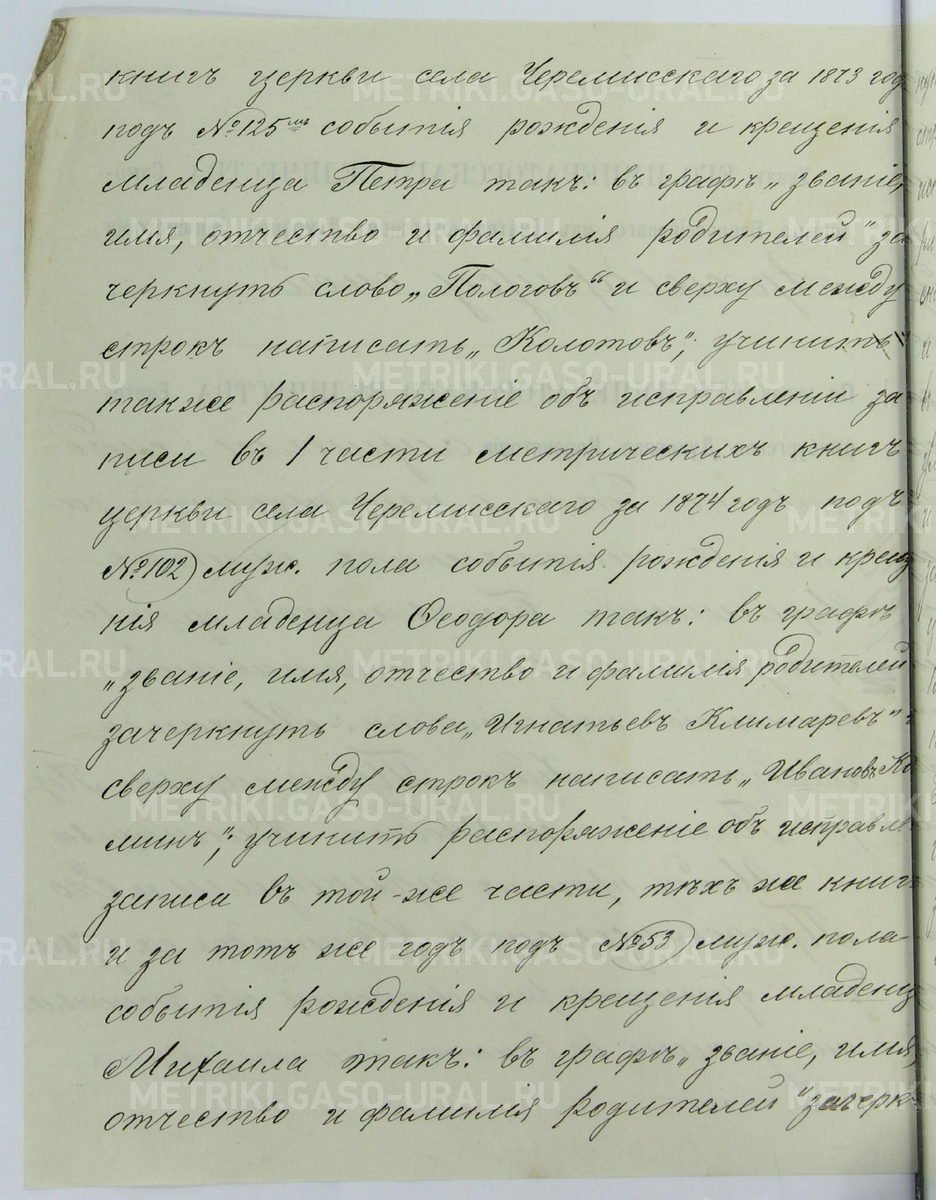 книгъ церкви села Черемисскаго за 1873 год
подъ №125мъ событія рожденія и крещенія
младенца Петра такъ: въ графѣ „званіе,
имя, отчество и фамилія родителей" за
черкнуть слово „Пологовъ" и сверху между
строкъ написать „Колотовъ"; учинить
также распоряженіе объ исправленіи за
писи въ 1 части метрическихъ книгъ
церкви села Черемисскаго за 1874 годъ подъ
№102 муж. пола событія рожденія и креще
нія младенца Ѳеодора такъ: въ графѣ
„званіе, имя, отчество и фамилія родителей
зачеркнуть слова „Игнатьевъ Климаревъ" и
сверху между строкъ написать „Ивановъ Ко
минъ"; учинить распоряженіе объ исправле
записи въ той-же части, тѣхъ же книг
и за тотъ же годъ подъ №53 муж. пола
событія рожденія и крещенія младенц
Михаила такъ: въ графѣ „званіе, имя,
отчество и фамилія родителей" зачерк-
METRIKI.GASO-URAL.RU